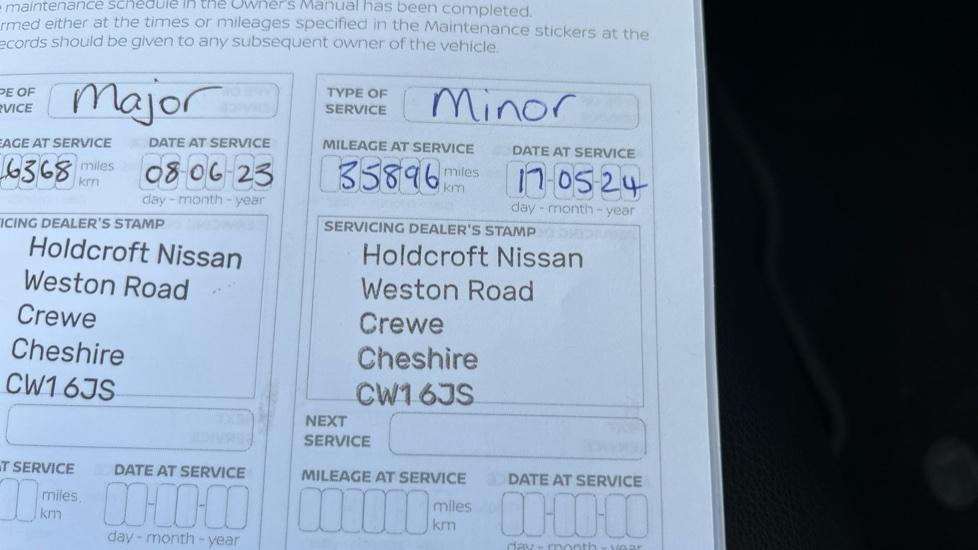 maintenance schedule in the Owner's Manual has been completed.
rmed either at the times or mileages specified in the Maintenance stickers at the
ecords should be given to any subsequent owner of the vehicle.
PE OF
VICE
Major
EAGE AT SERVICE
DATE AT SERVICE
6368 miles
km
08-06-23
day - month - year
ICING DEALER'S STAMP
Holdcroft Nissan
Weston Road
Crewe
Cheshire
CW1 6JS
T SERVICE
DATE AT SERVICE
miles
km
day - month - year
TYPE OF
SERVICE
Minor
MILEAGE AT SERVICE
DATE AT SERVICE
35896 miles
km
17-05-24
day - month - year
SERVICING DEALER'S STAMP
Holdcroft Nissan
Weston Road
Crewe
Cheshire
CW1 6JS
NEXT
SERVICE
MILEAGE AT SERVICE
DATE AT SERVICE
miles
km
day - month - year